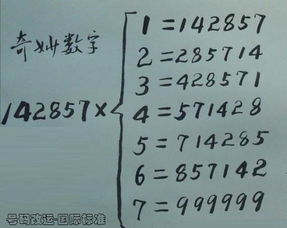 奇妙数字
142857×
1=142857
2=285714
3=428571
4=571428
5=714285
6=857142
7=999999
号码改运-国际标准